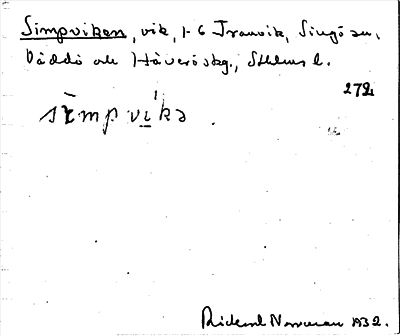 Simpviken, vik, 1-6 Tranvik, Singö sn,
Väddö och Häverö skg., Sthlms l.
272
sìmpvi̱ka
Rickard Norrman 1932.